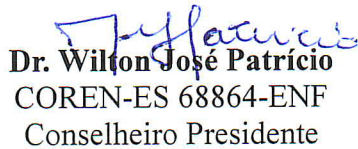 Dr. Wilton José Patrício
COREN-ES 68864-ENF
Conselheiro Presidente